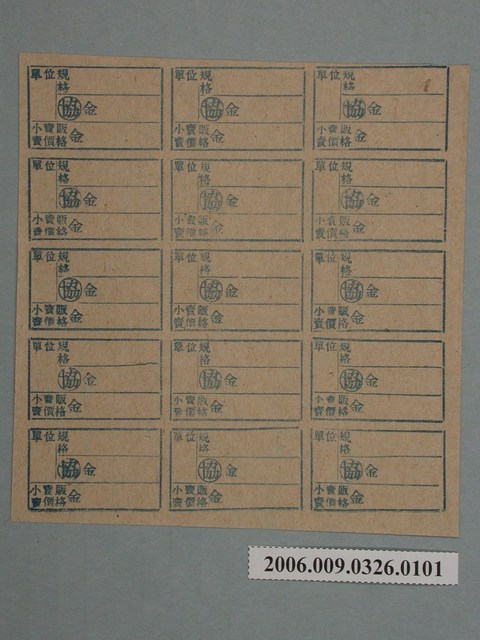 單位規
格
協金
小賣販
賣價格 金
單位規
格
協金
小賣販
賣價格 金
單位規
格
協金
小賣販
賣價格 金
單位規
格
協金
小賣販
賣價格 金
單位規
格
協金
小賣販
賣價格 金
單位規
格
協金
小賣販
賣價格 金
單位規
格
協金
小賣販
賣價格 金
單位規
格
協金
小賣販
賣價格 金
單位規
格
協金
小賣販
賣價格 金
單位規
格
協金
小賣販
賣價格 金
單位規
格
協金
小賣販
賣價格 金
單位規
格
協金
小賣販
賣價格 金
單位規
格
協金
小賣販
賣價格 金
單位規
格
協金
小賣販
賣價格 金
單位規
格
協金
小賣販
賣價格 金
2006.009.0326.0101